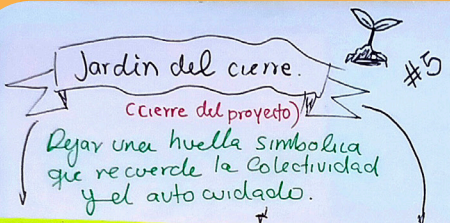 Jardin del cierre.
#5
(Cierre del proyecto)
Dejar una huella simbolica
que recuerde la Colectividad
y el autocuidado.